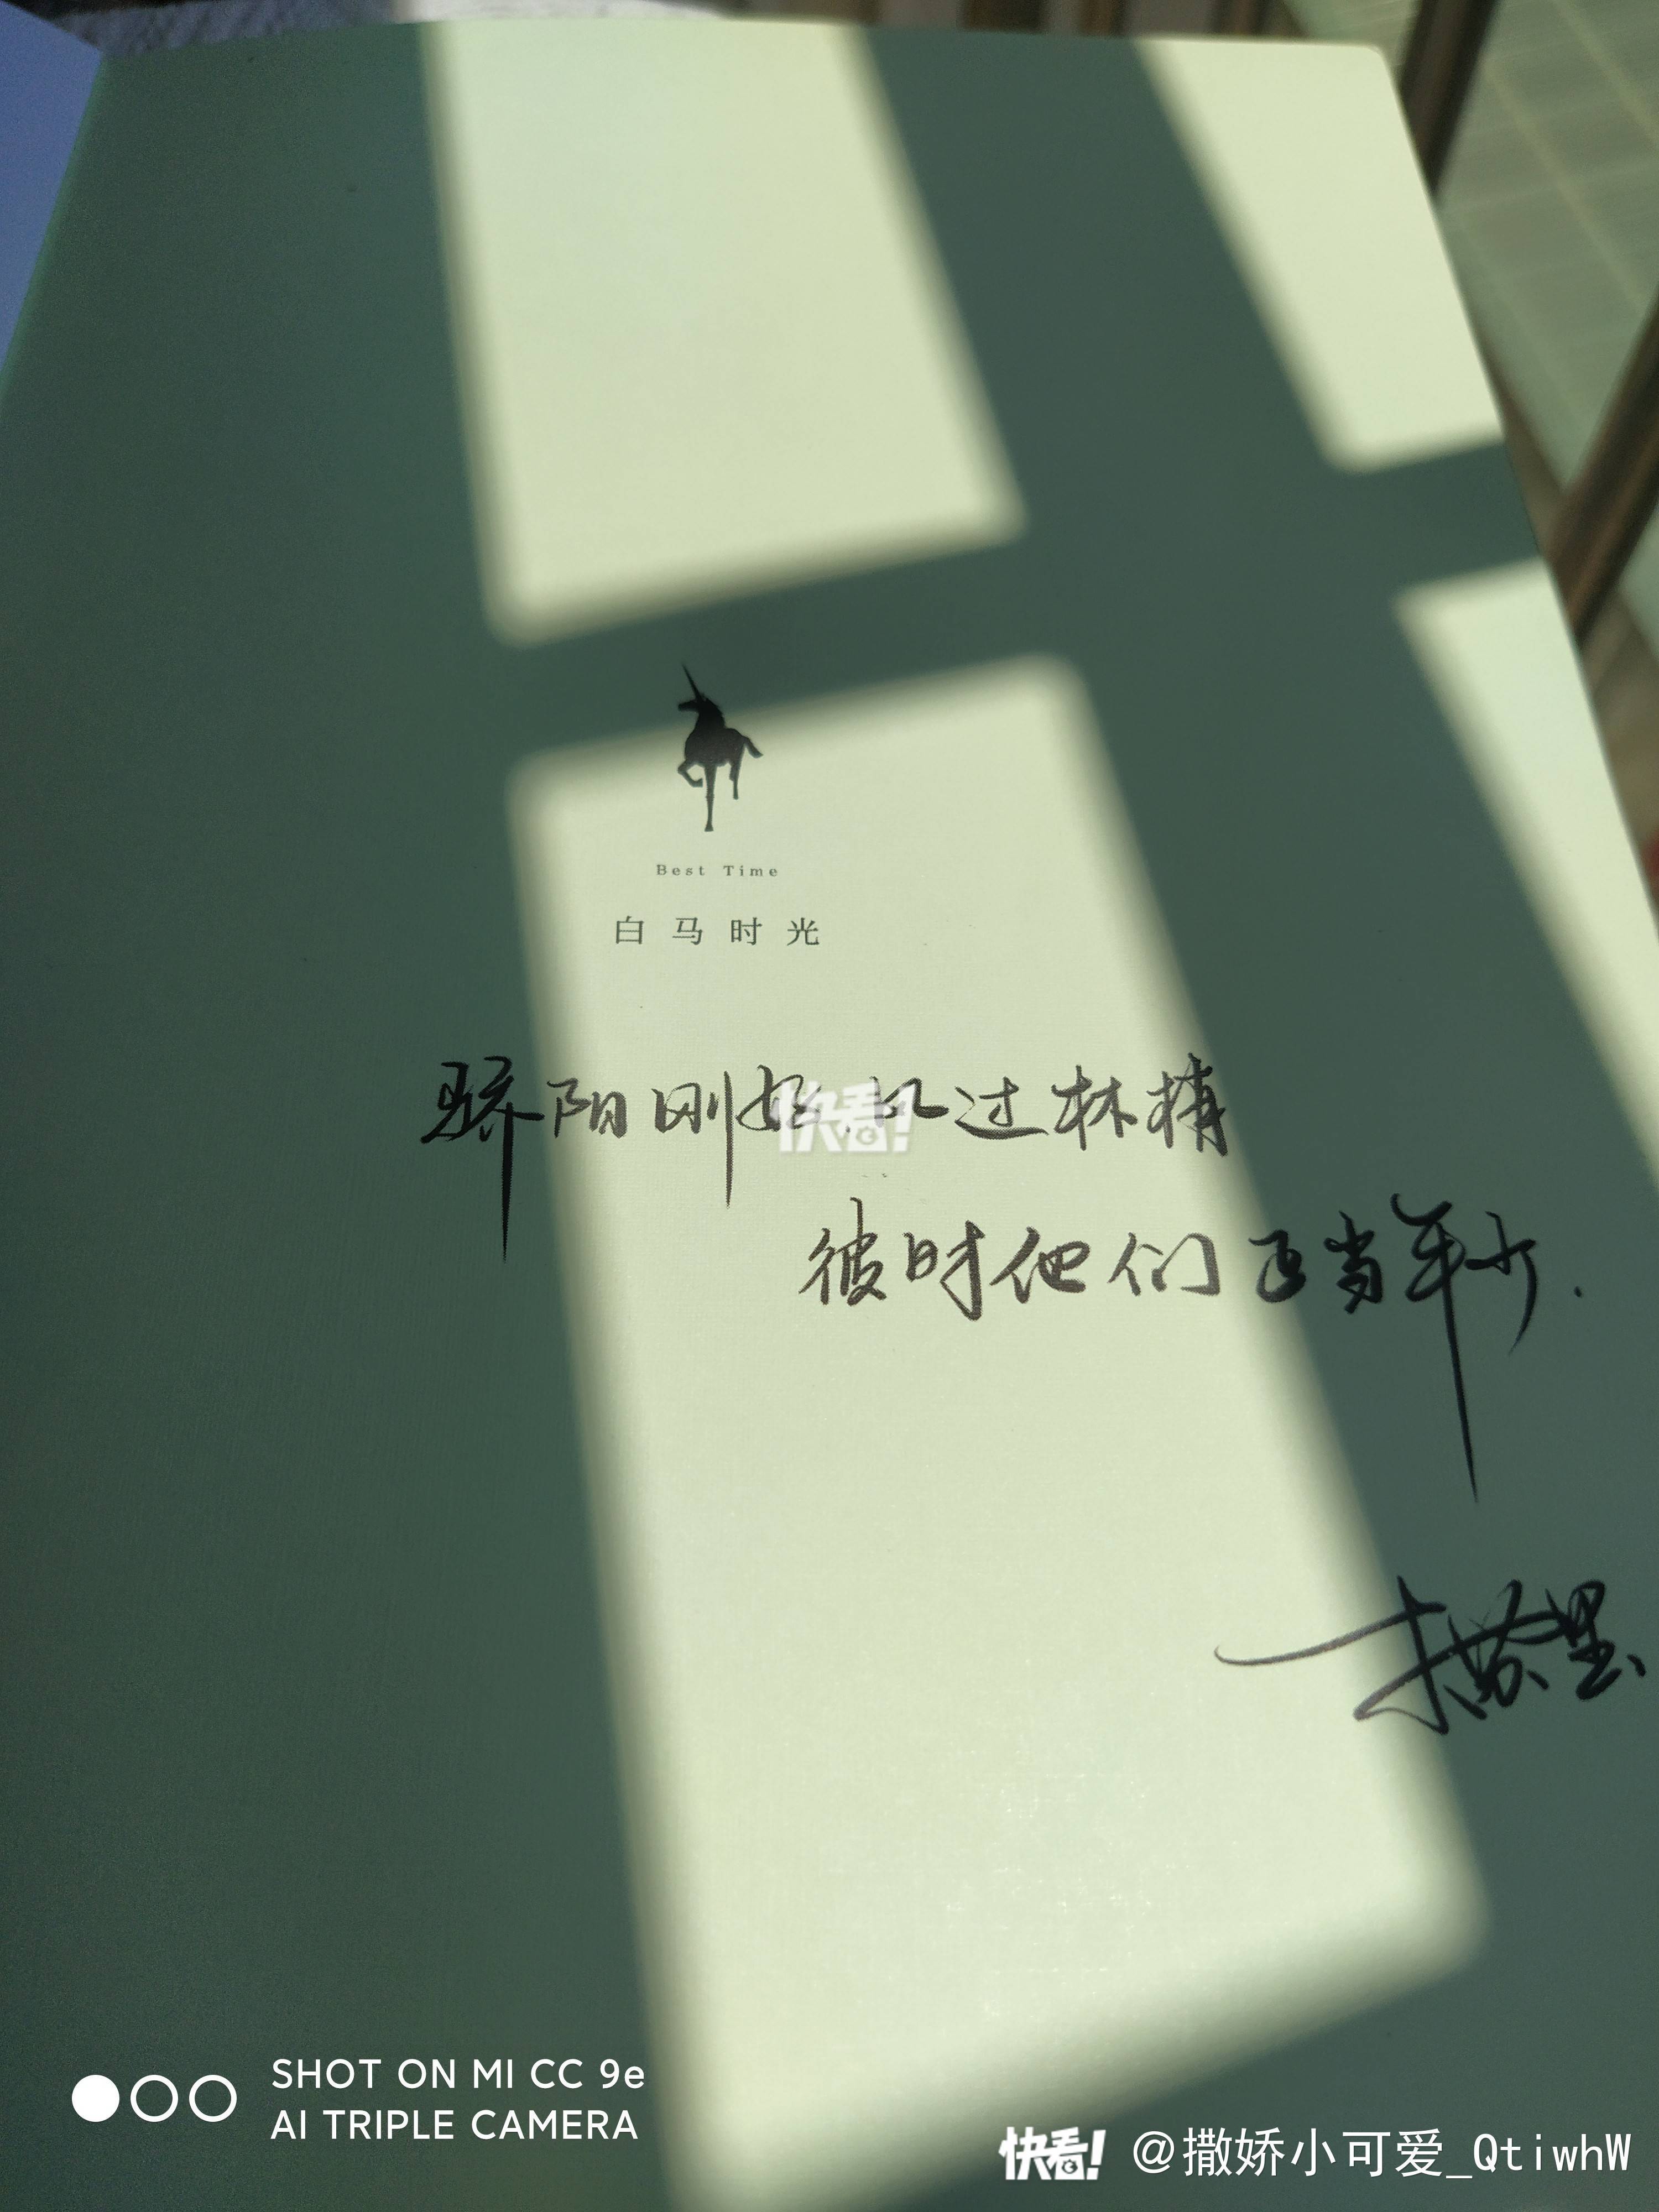 Best Time
白马时光
骄阳刚好,风过林梢
彼时他们正当年少.
快看!
SHOT ON MI CC 9e
AI TRIPLE CAMERA
快看! @撒娇小可爱_QtiwhW